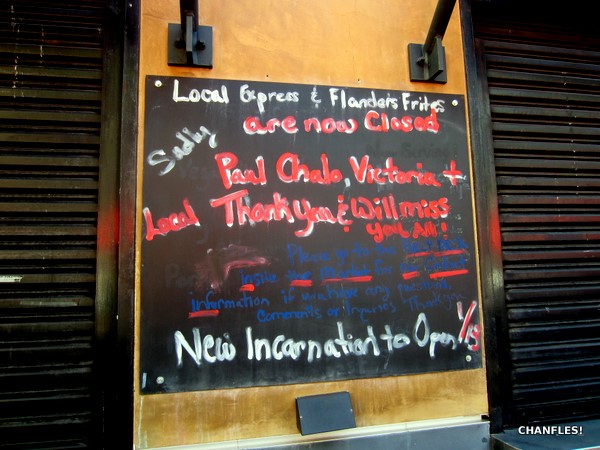 Local Express & Flanders Frites
Sadly are now Closed
Paul Chalo, Victoria +
Local Thank you & Will miss
you All!
Please go to the
inside the Market for
information if you have any questions
Comments or Inquiries Thanks
New Incarnation to Open 1/5
CHANFLES!